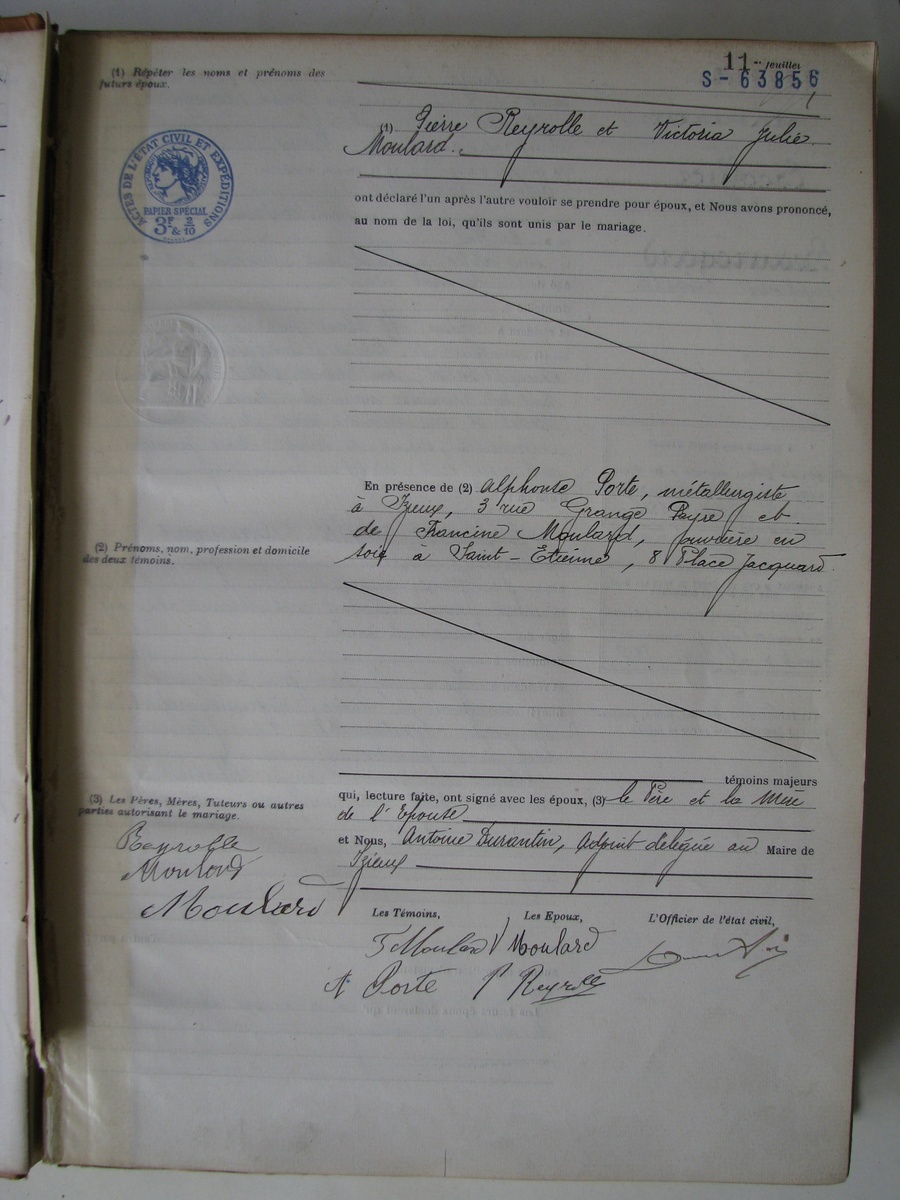 11me feuillet
S-63856
(1) Répéter les noms et prénoms des
futurs époux.
(1) Pierre Reyrolle et Victoria Julie
Moulard.
ACTES DE L'ÉTAT CIVIL ET EXPÉDITIONS
PAPIER SPÉCIAL
3F & 2/10
ont déclaré l'un après l'autre vouloir se prendre pour époux, et Nous avons prononcé,
au nom de la loi, qu'ils sont unis par le mariage.
En présence de (2) Alphonse Porte, métallurgiste
à Izieux, 3 rue Grange Payre et
de Francine Moulard, ouvrière en
soie à Saint-Etienne, 8 Place Jacquard
(2) Prénoms, nom, profession et domicile
des deux témoins.
témoins majeurs
qui, lecture faite, ont signé avec les époux, (3) le Père et la Mère
de l'Epouse
(3) Les Pères, Mères, Tuteurs ou autres
parties autorisant le mariage.
et Nous, Antoine Durantin, Adjoint délégué au Maire de
Izieux
Reyrolle
Moulard
Moulard
Les Témoins, Les Epoux, L'Officier de l'état civil,
F Moulard V Moulard
A Porte P Reyrolle